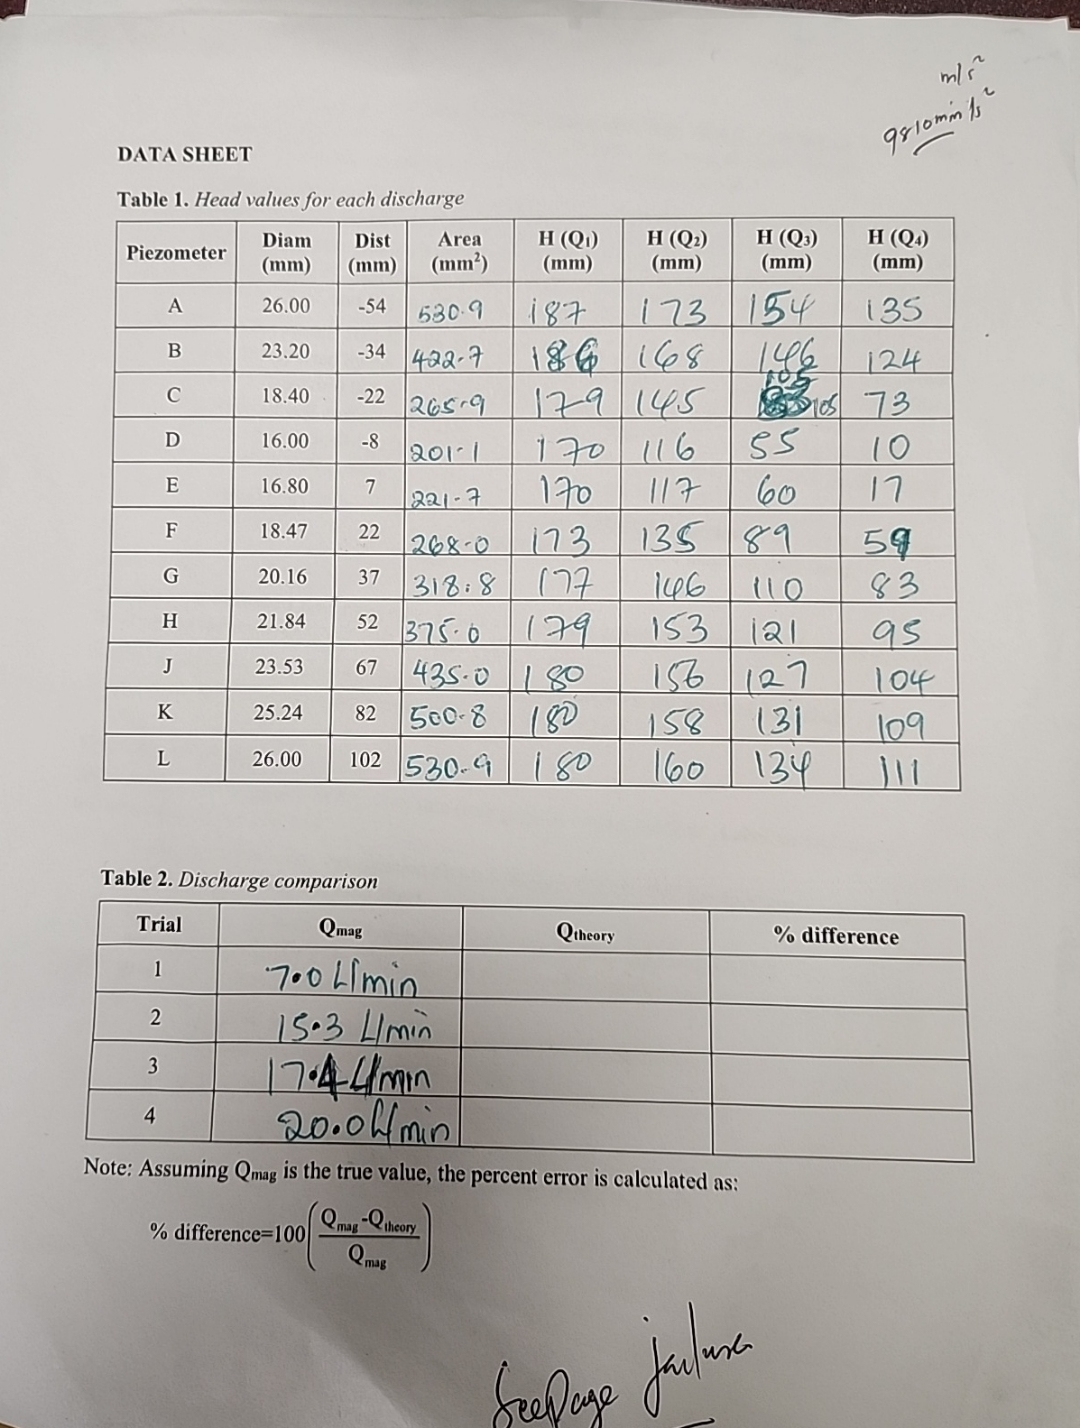 m/s²
9810mm/s²
DATA SHEET
Table 1. Head values for each discharge
Piezometer Diam (mm) Dist (mm) Area (mm²) H (Q₁) (mm) H (Q₂) (mm) H (Q₃) (mm) H (Q₄) (mm)
A 26.00 -54 530.9 187 173 154 135
B 23.20 -34 422.7 186 168 146 124
C 18.40 -22 265.9 179 145 105 105 73
D 16.00 -8 201.1 170 116 55 10
E 16.80 7 221.7 170 117 60 17
F 18.47 22 268.0 173 135 89 59
G 20.16 37 318.8 177 146 110 83
H 21.84 52 375.0 179 153 121 95
J 23.53 67 435.0 180 156 127 104
K 25.24 82 500.8 180 158 131 109
L 26.00 102 530.9 180 160 134 111
Table 2. Discharge comparison
Trial Qmag Qtheory % difference
1 7.0 L/min
2 15.3 L/min
3 17.4 L/min
4 20.0 L/min
Note: Assuming Qmag is the true value, the percent error is calculated as:
% difference=100(Qmag-Qtheory/Qmag)
Seepage failure